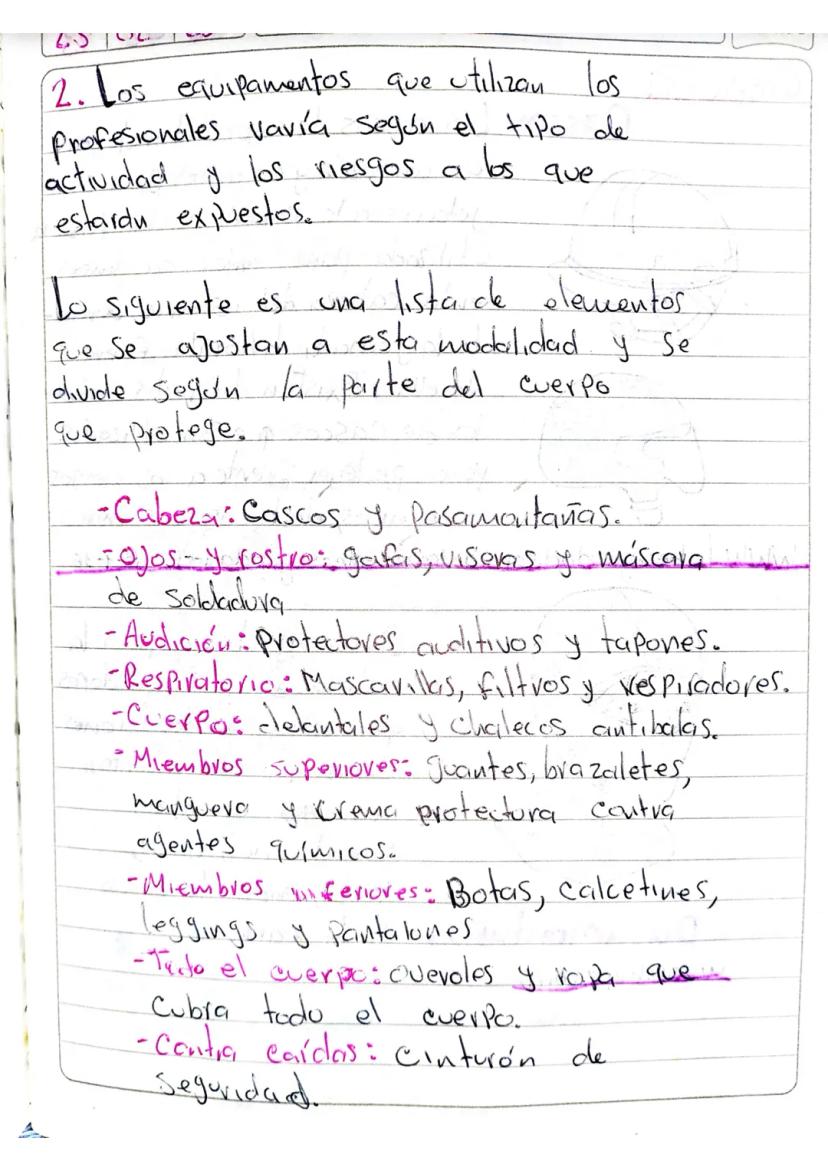 2. Los equipamentos que utilizan los
profesionales varía según el tipo de
actividad y los riesgos a los que
estarán expuestos.
Lo siguiente es una lista de elementos
que se ajustan a esta modalidad y se
divide según la parte del cuerpo
que protege.
-Cabeza: Cascos y pasamontañas.
-Ojos y rostro: gafas, viseras y máscara
de soldadura
-Audición: protectores auditivos y tapones.
-Respiratorio: Mascarillas, filtros y respiradores.
-Cuerpo: delantales y chalecos antibalas.
-Miembros superiores: guantes, brazaletes,
manguera y crema protectura contra
agentes químicos.
-Miembros inferiores: Botas, calcetines,
leggings y pantalones
-Todo el cuerpo: overoles y ropa que
cubra todo el cuerpo.
-Contra caídas: cinturón de
seguridad.